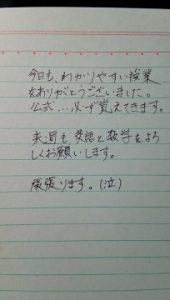 今日も、わかりやすい授業
をありがとうございました。
公式…必ず覚えてきます。
来週も英語と数学をよろ
しくお願いします。
頑張ります。(泣)